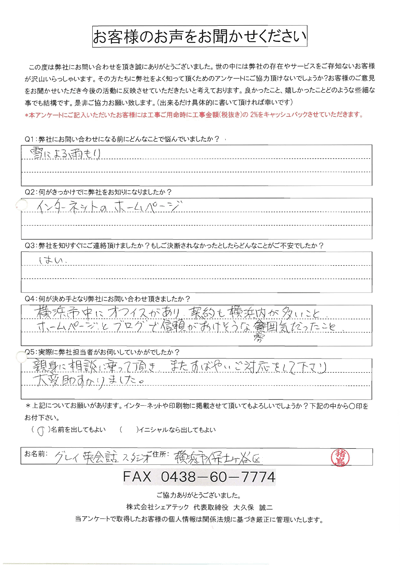 お客様のお声をお聞かせください
この度は弊社にお問い合わせを頂き誠にありがとうございました。世の中には弊社の存在やサービスをご存知ないお客様
が沢山いらっしゃいます。その方たちに弊社をよく知って頂くためのアンケートにご協力頂けないでしょうか?お客様のご意見
をお聞かせいただき今後の活動に反映させていきたいと考えております。良かったこと、嬉しかったことなどのような些細な
事でも結構です。是非ご協力お願い致します。(出来るだけ具体的に書いて頂ければ幸いです)
*本アンケートにご記入いただいたお客様には工事ご用命時に工事金額(税抜き)の 2%をキャッシュバックさせていただきます。
Q1:弊社にお問い合わせになる前にどんなことで悩んでいましたか?
雪による雨もり
Q2:何がきっかけでに弊社をお知りになりましたか?
インターネットの ホームページ
Q3:弊社を知りすぐにご連絡頂けましたか?もしご決断されなかったとしたらどんなことがご不安でしたか?
はい。
Q4:何が決め手となり弊社にお問い合わせ頂きましたか?
横浜市中にオフィスがあり 契約も横浜内が多いこと
ホームページとブログで信頼がおけそうな雰囲気だったこと
Q5:実際に弊社担当者がお伺いしていかがでしたか?
親身に相談に乗って頂き またすばやいご対応をして下さり
大変助かりました。
*上記についてお願いがあります。インターネットや印刷物に掲載させて頂いてもよろしいでしょうか?下記の中から〇印を
お付下さい。
(〇)名前を出してもよい ( )イニシャルなら出してもよい
お名前: グレイ英会話スタジオ 住所: 横浜市保土ヶ谷区
FAX 0438-60-7774
ご協力ありがとうございました。
株式会社シェアテック 代表取締役 大久保 誠二
当アンケートで取得したお客様の個人情報は関係法規に基づき厳正に管理いたします。